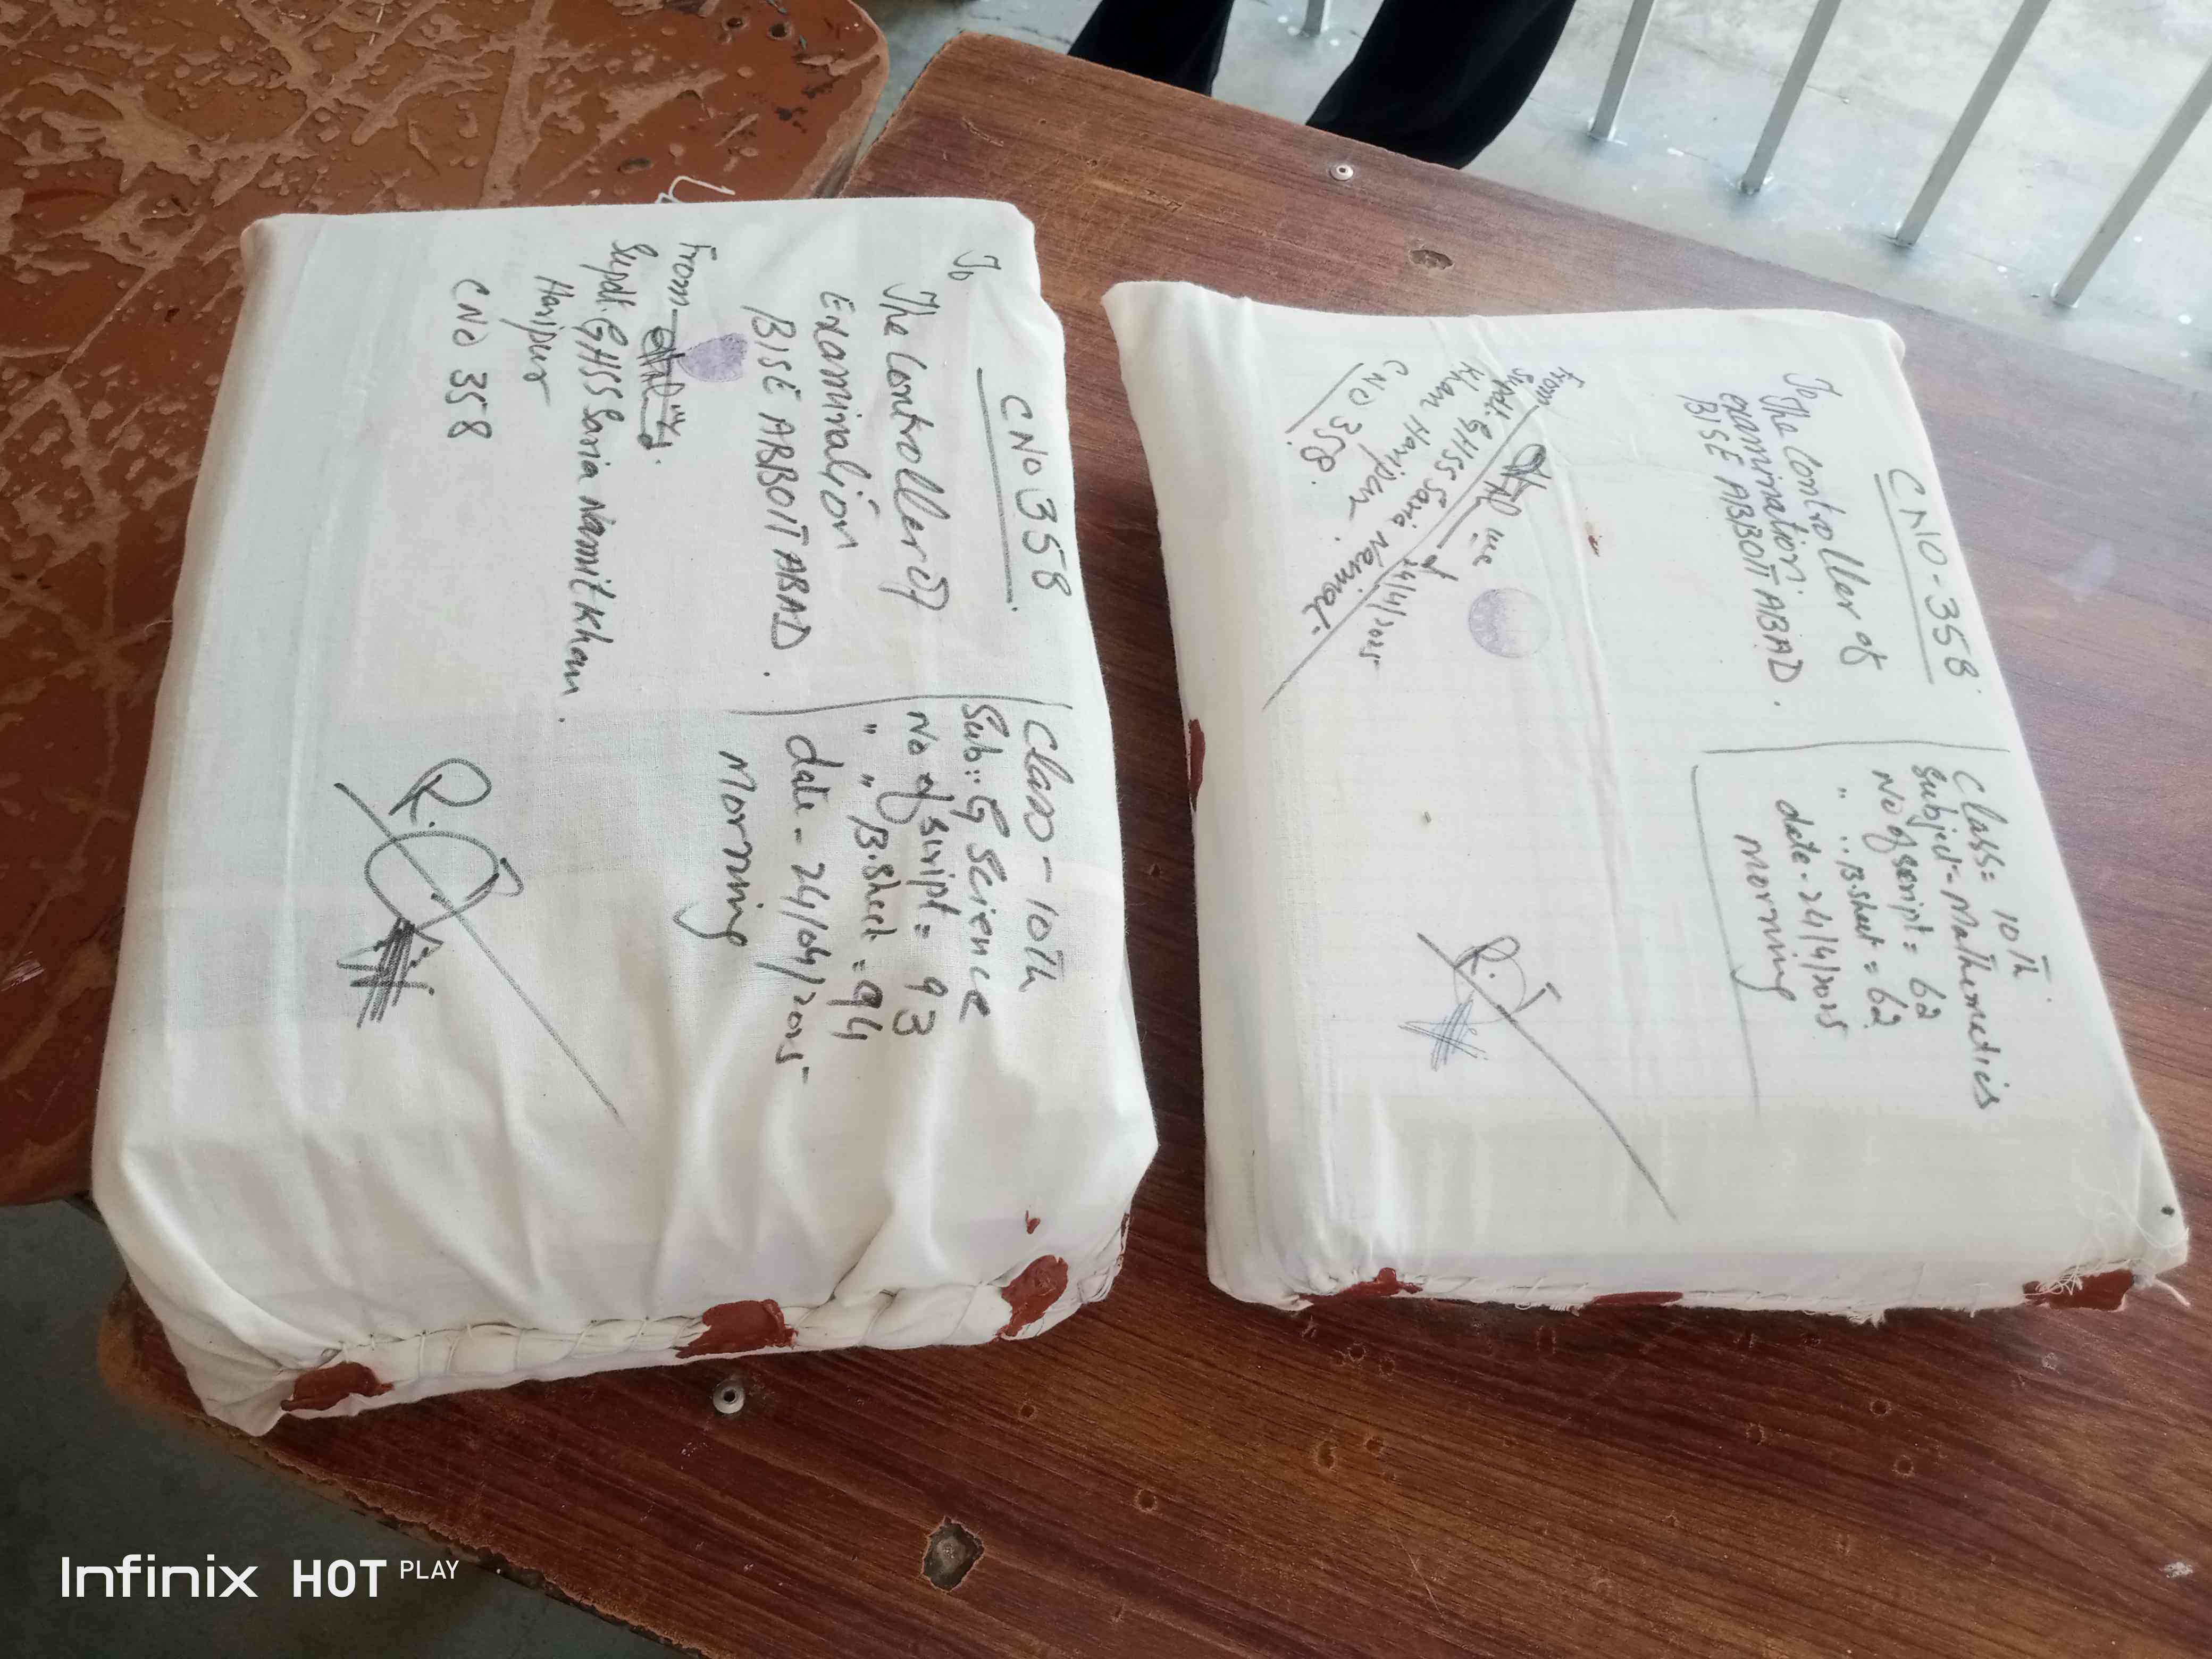 CNO 358
To
The Controller of
Examination
BISE ABBOTTABAD.
From
Supdt. GHSS Saria Naamit Khan.
Haripur
CNO 358
Class - 10th
Sub:: G Science
No of script = 93
" " B.sheet = 94
date - 24/04/2025
Morning
CNO-358
To The Controller of
examination
BISE ABBOTTABAD.
From
Supdt. GHSS Saria Neimat
Khan Haripur
CNO 358.
24/4/2025
Class = 10th
Subject = Mathematics
No of script = 62
" " B.sheet = 62
date - 24/4/2025
Morning
Infinix HOT PLAY